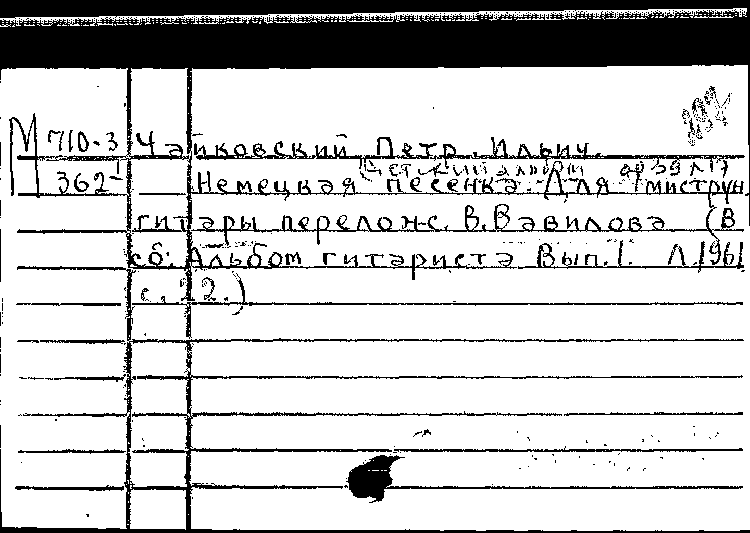 М 710-3 Чайковский Петр Ильич.
362 (Детский альбом ор 39 №17
Немецкая песенка. Для 7миструн.
гитары перелож. В. Вавилова (В
сб: Альбом гитариста Вып. 1. Л. 1961
с. 22.)